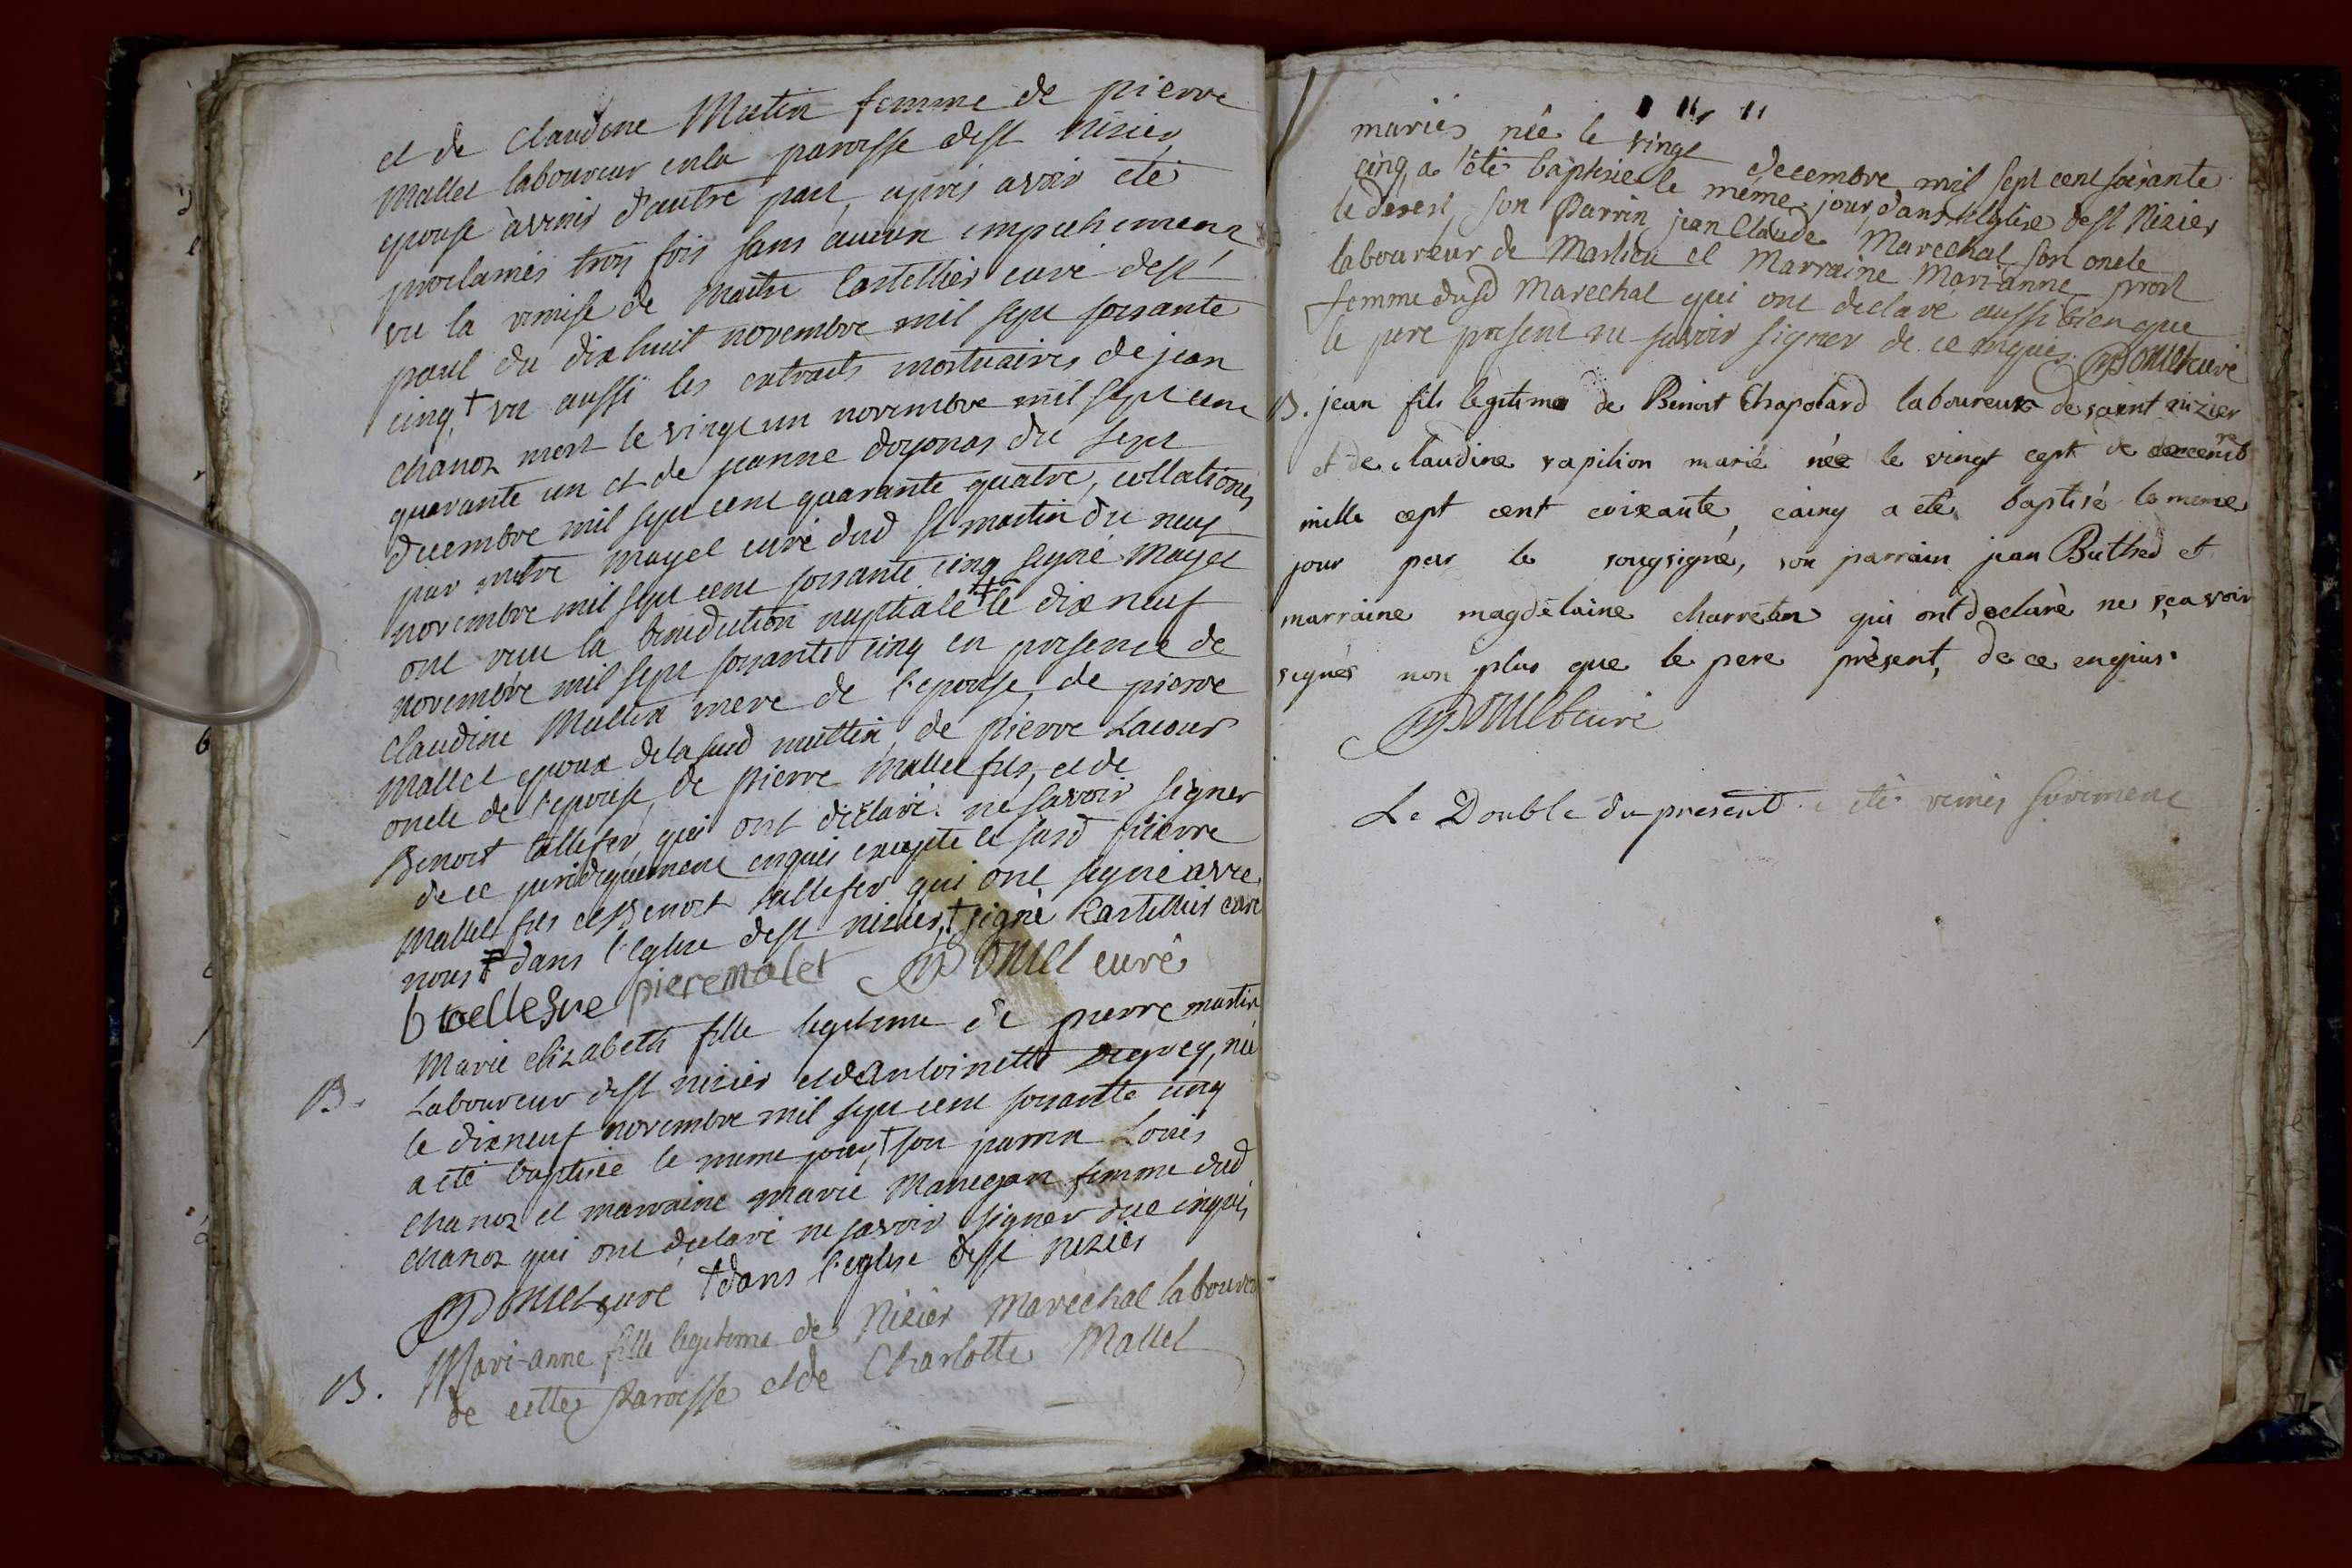 et de Claudine Mutin femme de pierre
Mallet laboureur en la paroisse de st Nizier
epouse àvenir d'autre part, apres avoir eté
proclamés trois fois sans aucun empechement
vu la remise de Maitre Castellier curé de st
paul du dixhuit novembre mil sept soixante
cinq, † vu aussi les extraits mortuaires de jean
chanoz mort le vingt un novembre mil sept cent
quarante un et de jeanne doyonas du sept
decembre mil sept cent quarante quatre, collationés
par maitre Mayet curé dud st martin du neuf
novembre mil sept cent soixante cinq signé Mayet
ont reçu la benediction nuptiale ‡ le dixneuf
novembre mil sept soixante cinq en presence de
Claudine Muttin mere de l'epouse, de pierre
Mallet epoux de la susd muttin, de pierre Lacour
oncle de l'epouse, de pierre Mallet fils, et de
Benoit tallefer qui ont déclaré ne savoir signer
de ce juridiquement enquis excepté le susd pierre
Mallet fils et Benoit tallefer qui ont signé avec
nous ‡ dans l'eglise de st nizier, † signé Castellier curé
b tellefre pieremalet Donnet curé
B. Marie elizabeth fille legitime de pierre martin
Laboureur de st nizier et de Antoinette, née
le dixneuf novembre mil sept cent soixante cinq
a eté baptisée le meme jour, † son parrin Loüis
chanoz et marraine Marie Manegon femme dud
chanoz qui ont declaré ne savoir signer de ce enquis
curé † dans l'eglise de st Nizier
B. Mari-anne fille legitime de Nizier Marechal laboureur
de cette Paroisse et de Charlotte Mallet
mariés née le vingt decembre mil sept cent soixante
cinq, a été baptisée le même jour, dans l'Eglise de st Nizier
le desert, son Parrin jean Claude Marechal son oncle
laboureur de Marlieu et Marraine Mari-anne prost
femme dusd Marechal qui ont declaré aussi bien que
le pere present ne savoir signer de ce enquis. curé
B. jean fils légitime de Benoit Chapolard laboureur de saint nizier
et de claudine rapilion marié née le vingt cept de decembre
mille cept cent coixante cainq a eté baptisé le meme
jour par le sougsigné, son parrain jean Buthod et
marraine magdelaine charreton qui ont declaré ne sçavoir
signer non plus que le pere présent, de ce enquis.
curé
Le Double du present a eté remis surement